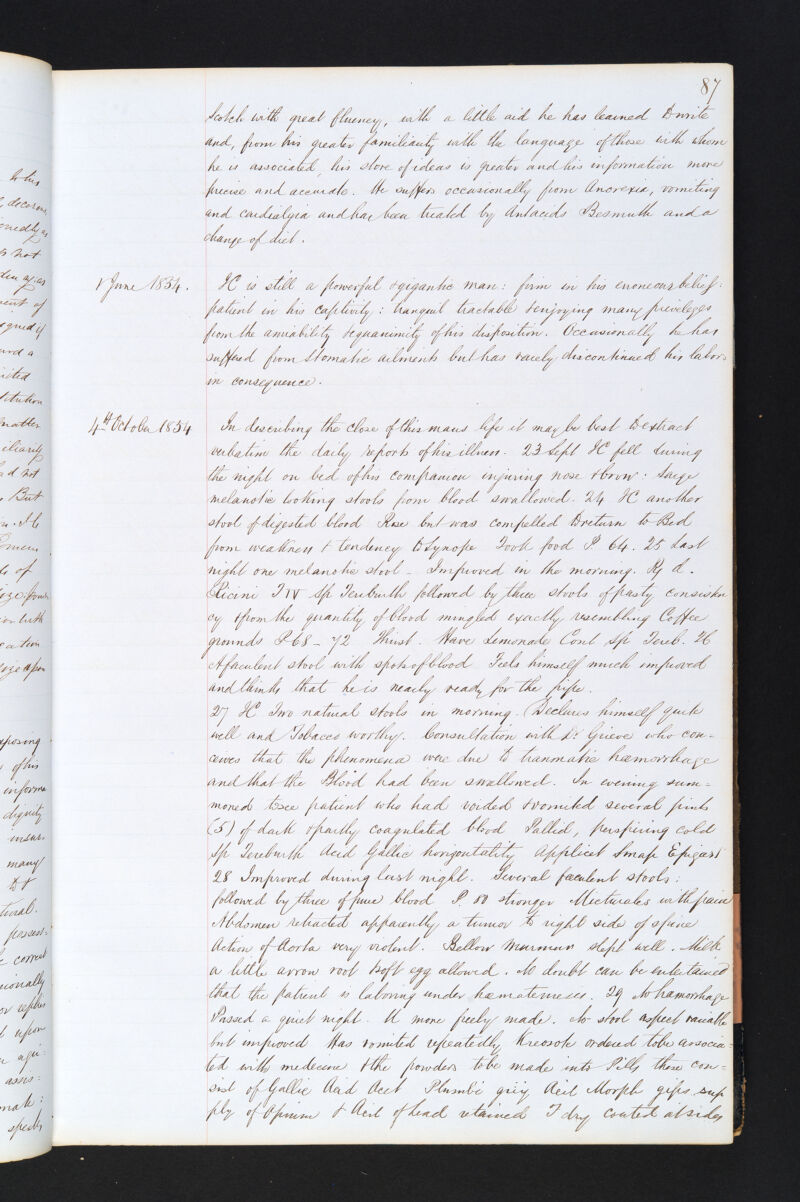 87
Scotch with great fluency, with a little aid he has learned to write
and, from his greater familiarity with the language of those with whom
he is associated, his store of ideas is greater and his information more
precise and accurate. He suffers occasionally from Anorexia, vomiting
and cardialgia and has been treated by Antacids Besmuth and a
change of diet.
1 June 1854. HC is still a powerful & gigantic man: firm in his erroneous belief:
patient in his captivity: tranquil tractable & enjoying many priveleges
from the amiability & equanimity of his disposition. Occasionally he has
suffered from stomatic ailments but has rarely discontinued his labors
in consequence.
4th October 1854 In describing the close of this mans life it may be best to extract
verbatim the daily reports of his illness. 23 Sept HC fell during
the night on bed of his companion injuring nose & brow: large
melanotic looking stools from blood swallowed. 24 HC another
stool of digested blood Rose but was compelled to return to Bed
from weakness & tendency to Synope Took food P. 64. 25 Last
night one melanotic stool – Improved in the morning. Ol.
Ricini Sp Terebinth followed by three stools of pasty consisten
cy & from the quantity of blood mingled exactly resembling Coffee
grounds P 68 – 72 Thirst. Have Lemonade Cont Sp Tereb. 26
A faeculent stool with spots of blood Feels himself much improved
and thinks that he is nearly ready for the pipe.
27 HC Two natural stools in morning. Declares himself quite
well and Tobacco worthy. Consultation with Dr Grieve who con-
ceives that the phenomena were due to traumatic haemorrhage
and that the Blood had been swallowed. In evening sum-
moned to see patient who had voided & vomited several pints
(5) of dark & partly coagulated blood Pallid, perspiring cold
Sp Terebinth Acid Gallic horizontality Applicet Sinap Epigast
28 Improved during last night. Several faeculent stools:
followed by three of pure blood P. 80 stronger Micturates with pain
Abdomen retracted apparently a tumor to right side of spine
Action of Aorta very violent. Bellow murmur slept well. Milk
a little arrow root & soft egg allowed. No doubt can be entertained
that the patient is laboring under haematemesis. 29 No hamorrhage
Passed a quiet night. U more freely made. No stool aspect
but improved Has vomited repeatedly Kreosote ordered to be associa-
ted with medicine & the powders to be made into Pills these con-
sist of Gallic Acid Acet Plumbi Acet Morph sup
ply of Opium & Acet of lead retained T dry coated at sides